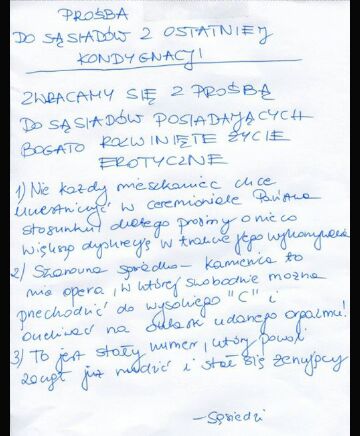 PROŚBA
DO SĄSIADÓW Z OSTATNIEJ
KONDYGNACJI
ZWRACAMY SIĘ Z PROŚBĄ
DO SĄSIADÓW POSIADAJĄCYCH
BOGATO ROZWINIĘTE ŻYCIE
EROTYCZNE
1) Nie każdy mieszkaniec chce
uczestniczyć w ceremoniale Państwa
stosunku, dlatego prosimy o nieco
większą dyskrecję w trakcie jego wykonywania
2) Szanowna sąsiadko – kamienica to
nie opera, w której swobodnie można
przechodzić do wysokiego "C" i
oczekiwać na oklaski udanego orgazmu!
3) To jest stały numer, który powoli
zaczął już nudzić i stał się żenujący
– Sąsiedzi